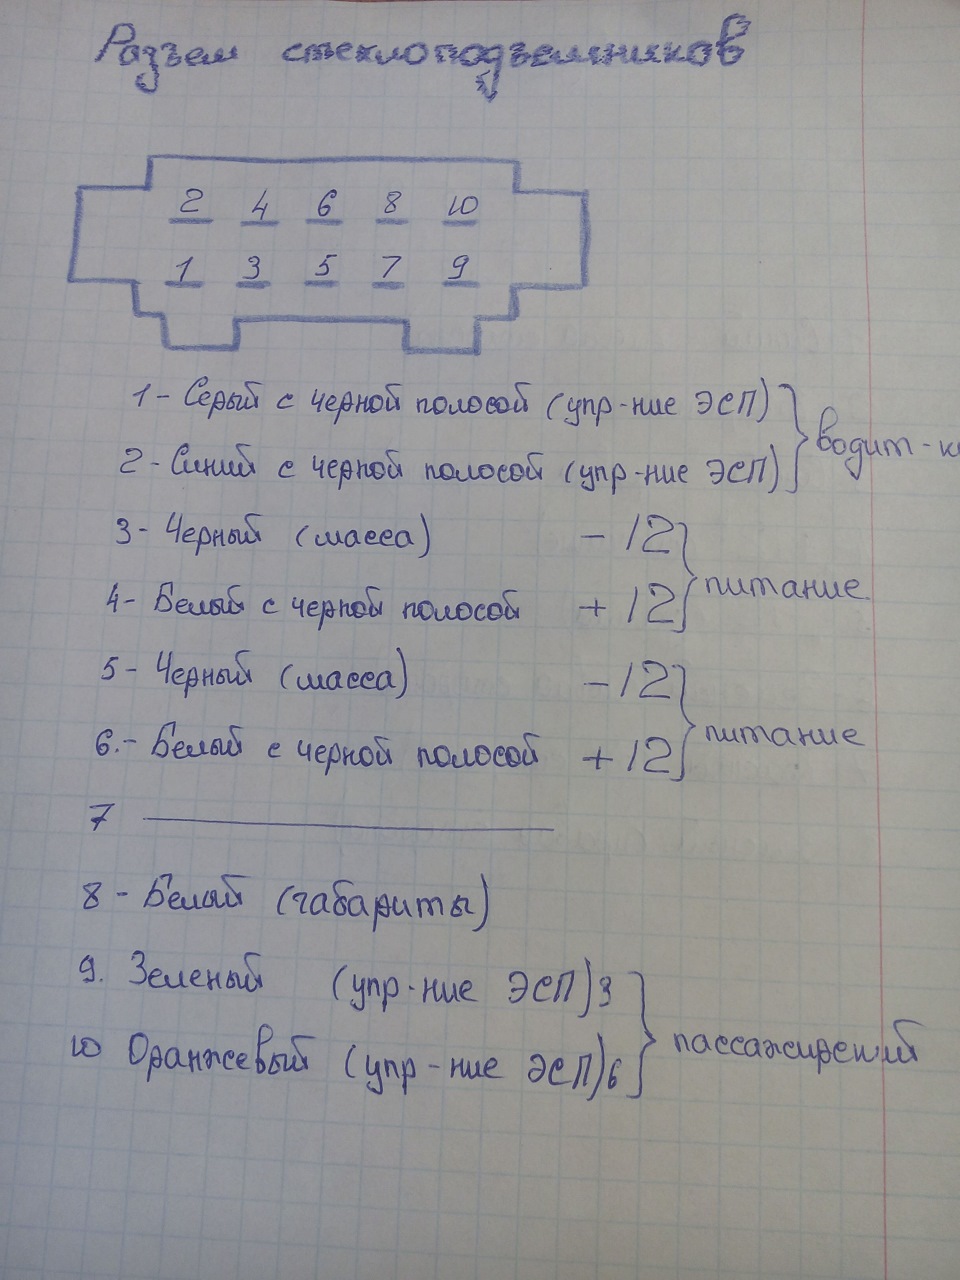 Разъем стеклоподъемников
2 4 6 8 10
1 3 5 7 9
1 - Серый с черной полосой (упр-ние ЭСП)
2 - Синий с черной полосой (упр-ние ЭСП)
водит-
3 - Черный (масса) - 12
4 - Белый с черной полосой + 12
питание
5 - Черный (масса) - 12
6. - Белый с черной полосой + 12
питание
7
8 - Белый (габариты)
9. Зеленый (упр-ние ЭСП) 3
10 Оранжевый (упр-ние ЭСП) 6
пассажирский